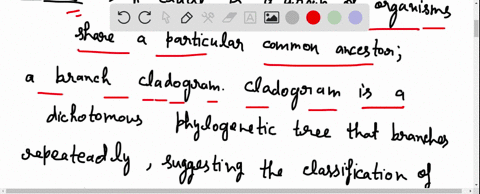 organisms
share a particular common ancestor;
a branch cladogram. Cladogram is a
dichotomous phylogenetic tree that branches
repeateadly, suggesting the classification of